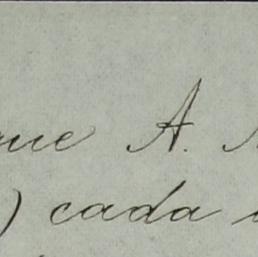 que A.
) cada